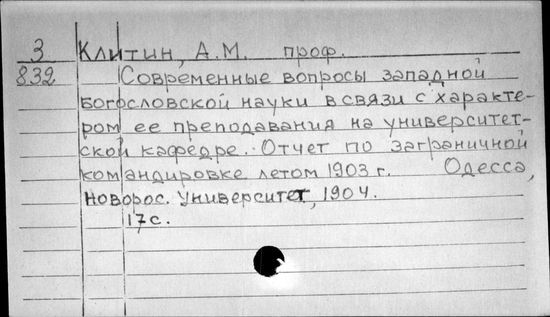 3 Клитин, А.М. проф.
832 Современные вопросы западной
богословской науки в связи с характе-
ром ее преподавания на университет-
ской кафедре. Отчет по заграничной
командировке летом 1903 г. Одесса,
Новорос. Университет, 1904.
17 с.